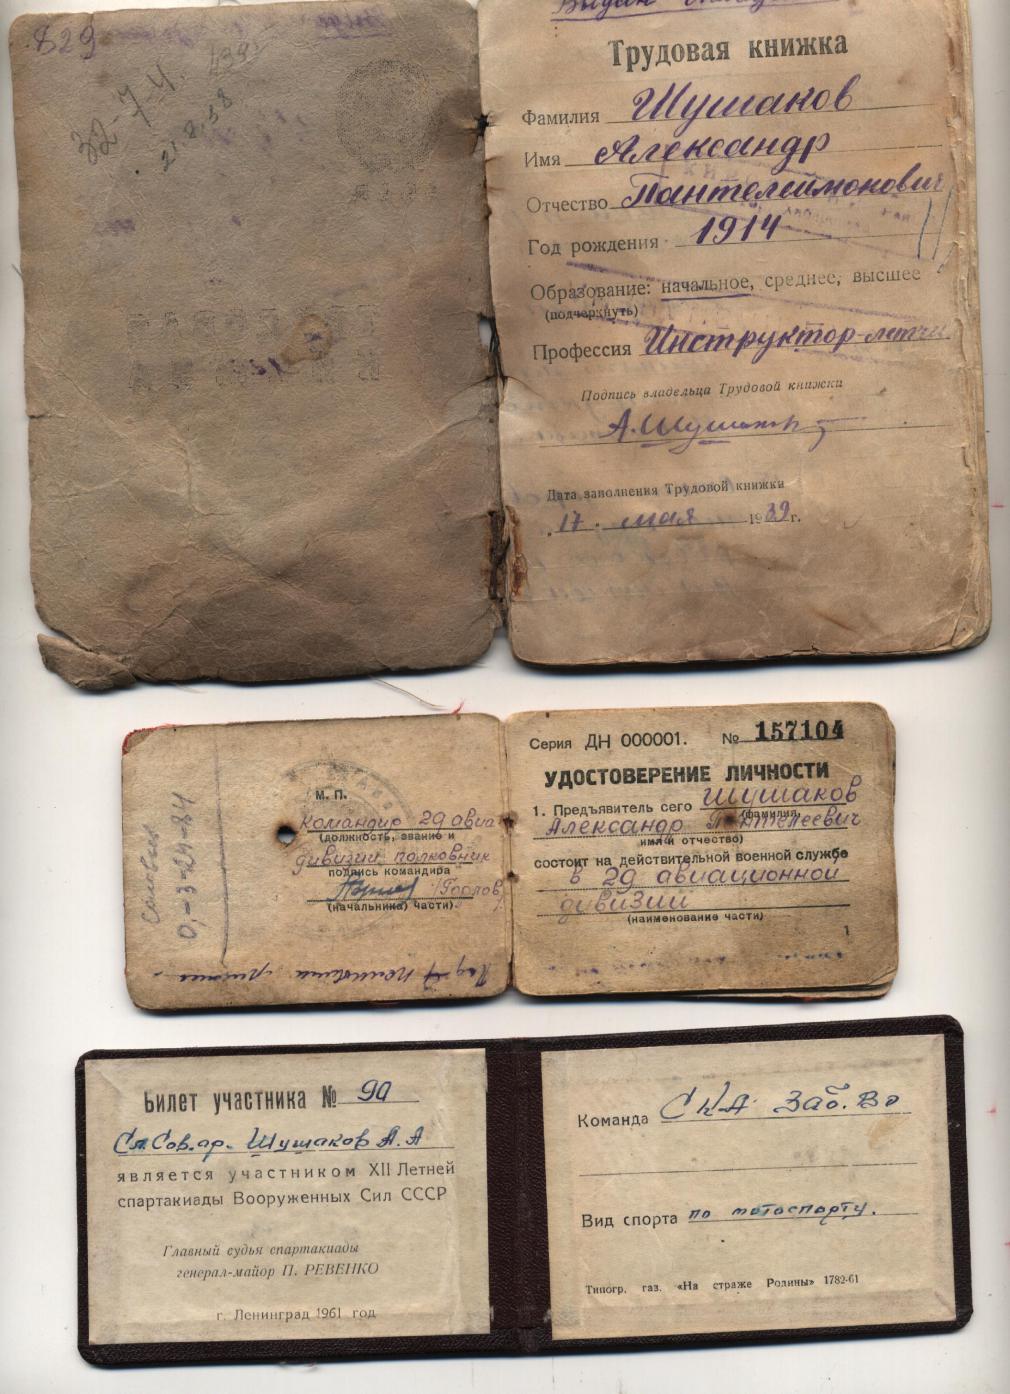 829
32-7-4.
21.2.58
Трудовая книжка
Фамилия Шушаков
Имя Александр
Отчество Пантелеимонович
Год рождения 1914
Образование: начальное, среднее, высшее
(подчеркнуть)
Профессия Инструктор-летчи
Подпись владельца Трудовой книжки
А. Шушаков
Дата заполнения Трудовой книжки
"17" мая 1939 г.
М. П.
Командир 29 авиа
(должность, звание и
дивизии полковник
подпись командира
/Горлов/
(начальника) части)
0,-3-24-84
Серия ДН 000001. № 157104
УДОСТОВЕРЕНИЕ ЛИЧНОСТИ
1. Предъявитель сего Шушаков
(фамилия,
Александр Пантелеевич
имя и отчество)
состоит на действительной военной службе
в 29 авиационной
дивизии
(наименование части)
1
Билет участника № 90
Шушаков А. А
является участником XII Летней
спартакиады Вооруженных Сил СССР
Главный судья спартакиады
генерал-майор П. РЕВЕНКО
г. Ленинград 1961 год
Команда СКА Заб. Во
Вид спорта по мотоспорту.
Типогр. газ. «На страже Родины» 1782-61